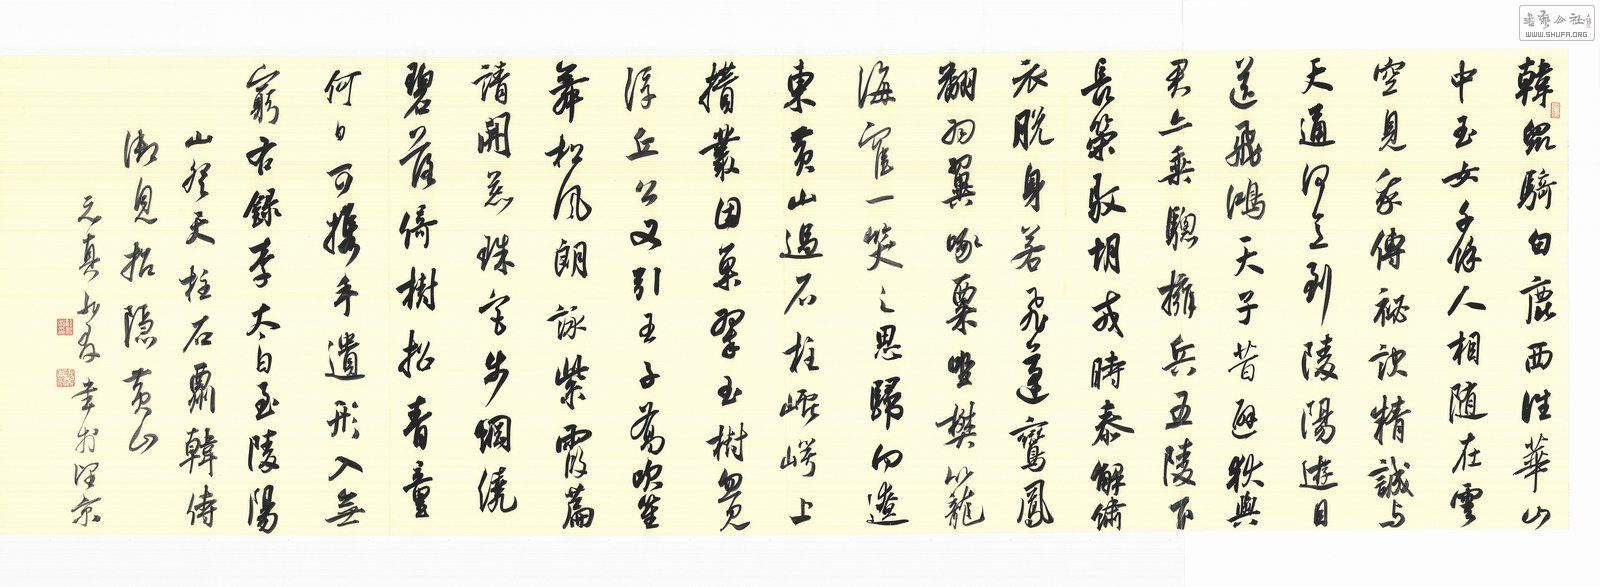 韓眾騎白鹿西往華山
中玉女千餘人相隨在雲
空見我傳祕訣精誠與
天通何意到陵陽遊目
送飛鴻天子昔避狄與
君亦乘驄擁兵五陵下
長策馭胡戎時泰解繡
衣脫身若飛蓬鸞鳳
翻羽翼啄粟坐樊籠
海鶴一笑之思歸向遼
東黃山過石柱巘崿上
攢叢因巢翠玉樹忽見
浮丘公又引王子喬吹笙
舞松風朗詠紫霞篇
請開蕊珠宮步綱繞
碧落倚樹招青童
何日可攜手遺形入無
窮右錄李太白至陵陽
山登天柱石酬韓侍
御見招隱黃山
元真
書藝公社
WWW.SHUFA.ORG